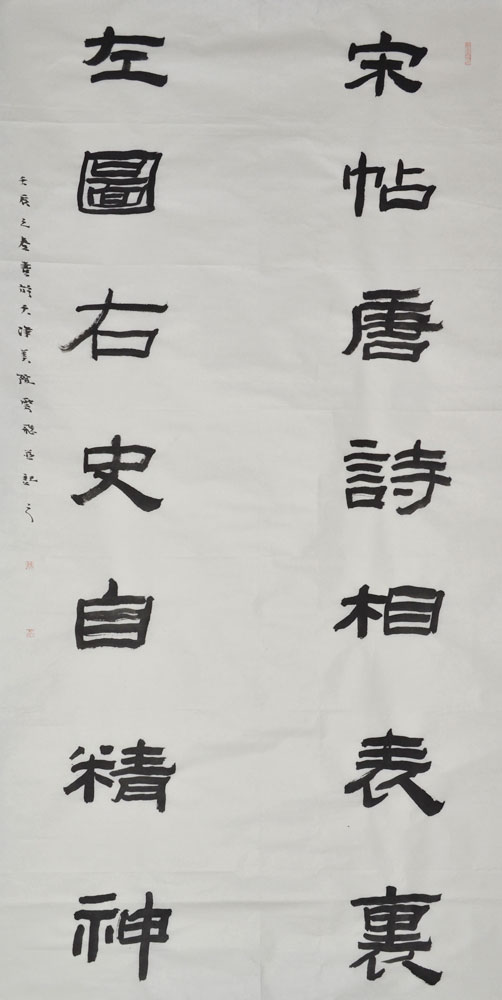 宋帖唐詩相表裏
左圖右史自精神
壬辰之春重游天津美院雲飛並記之